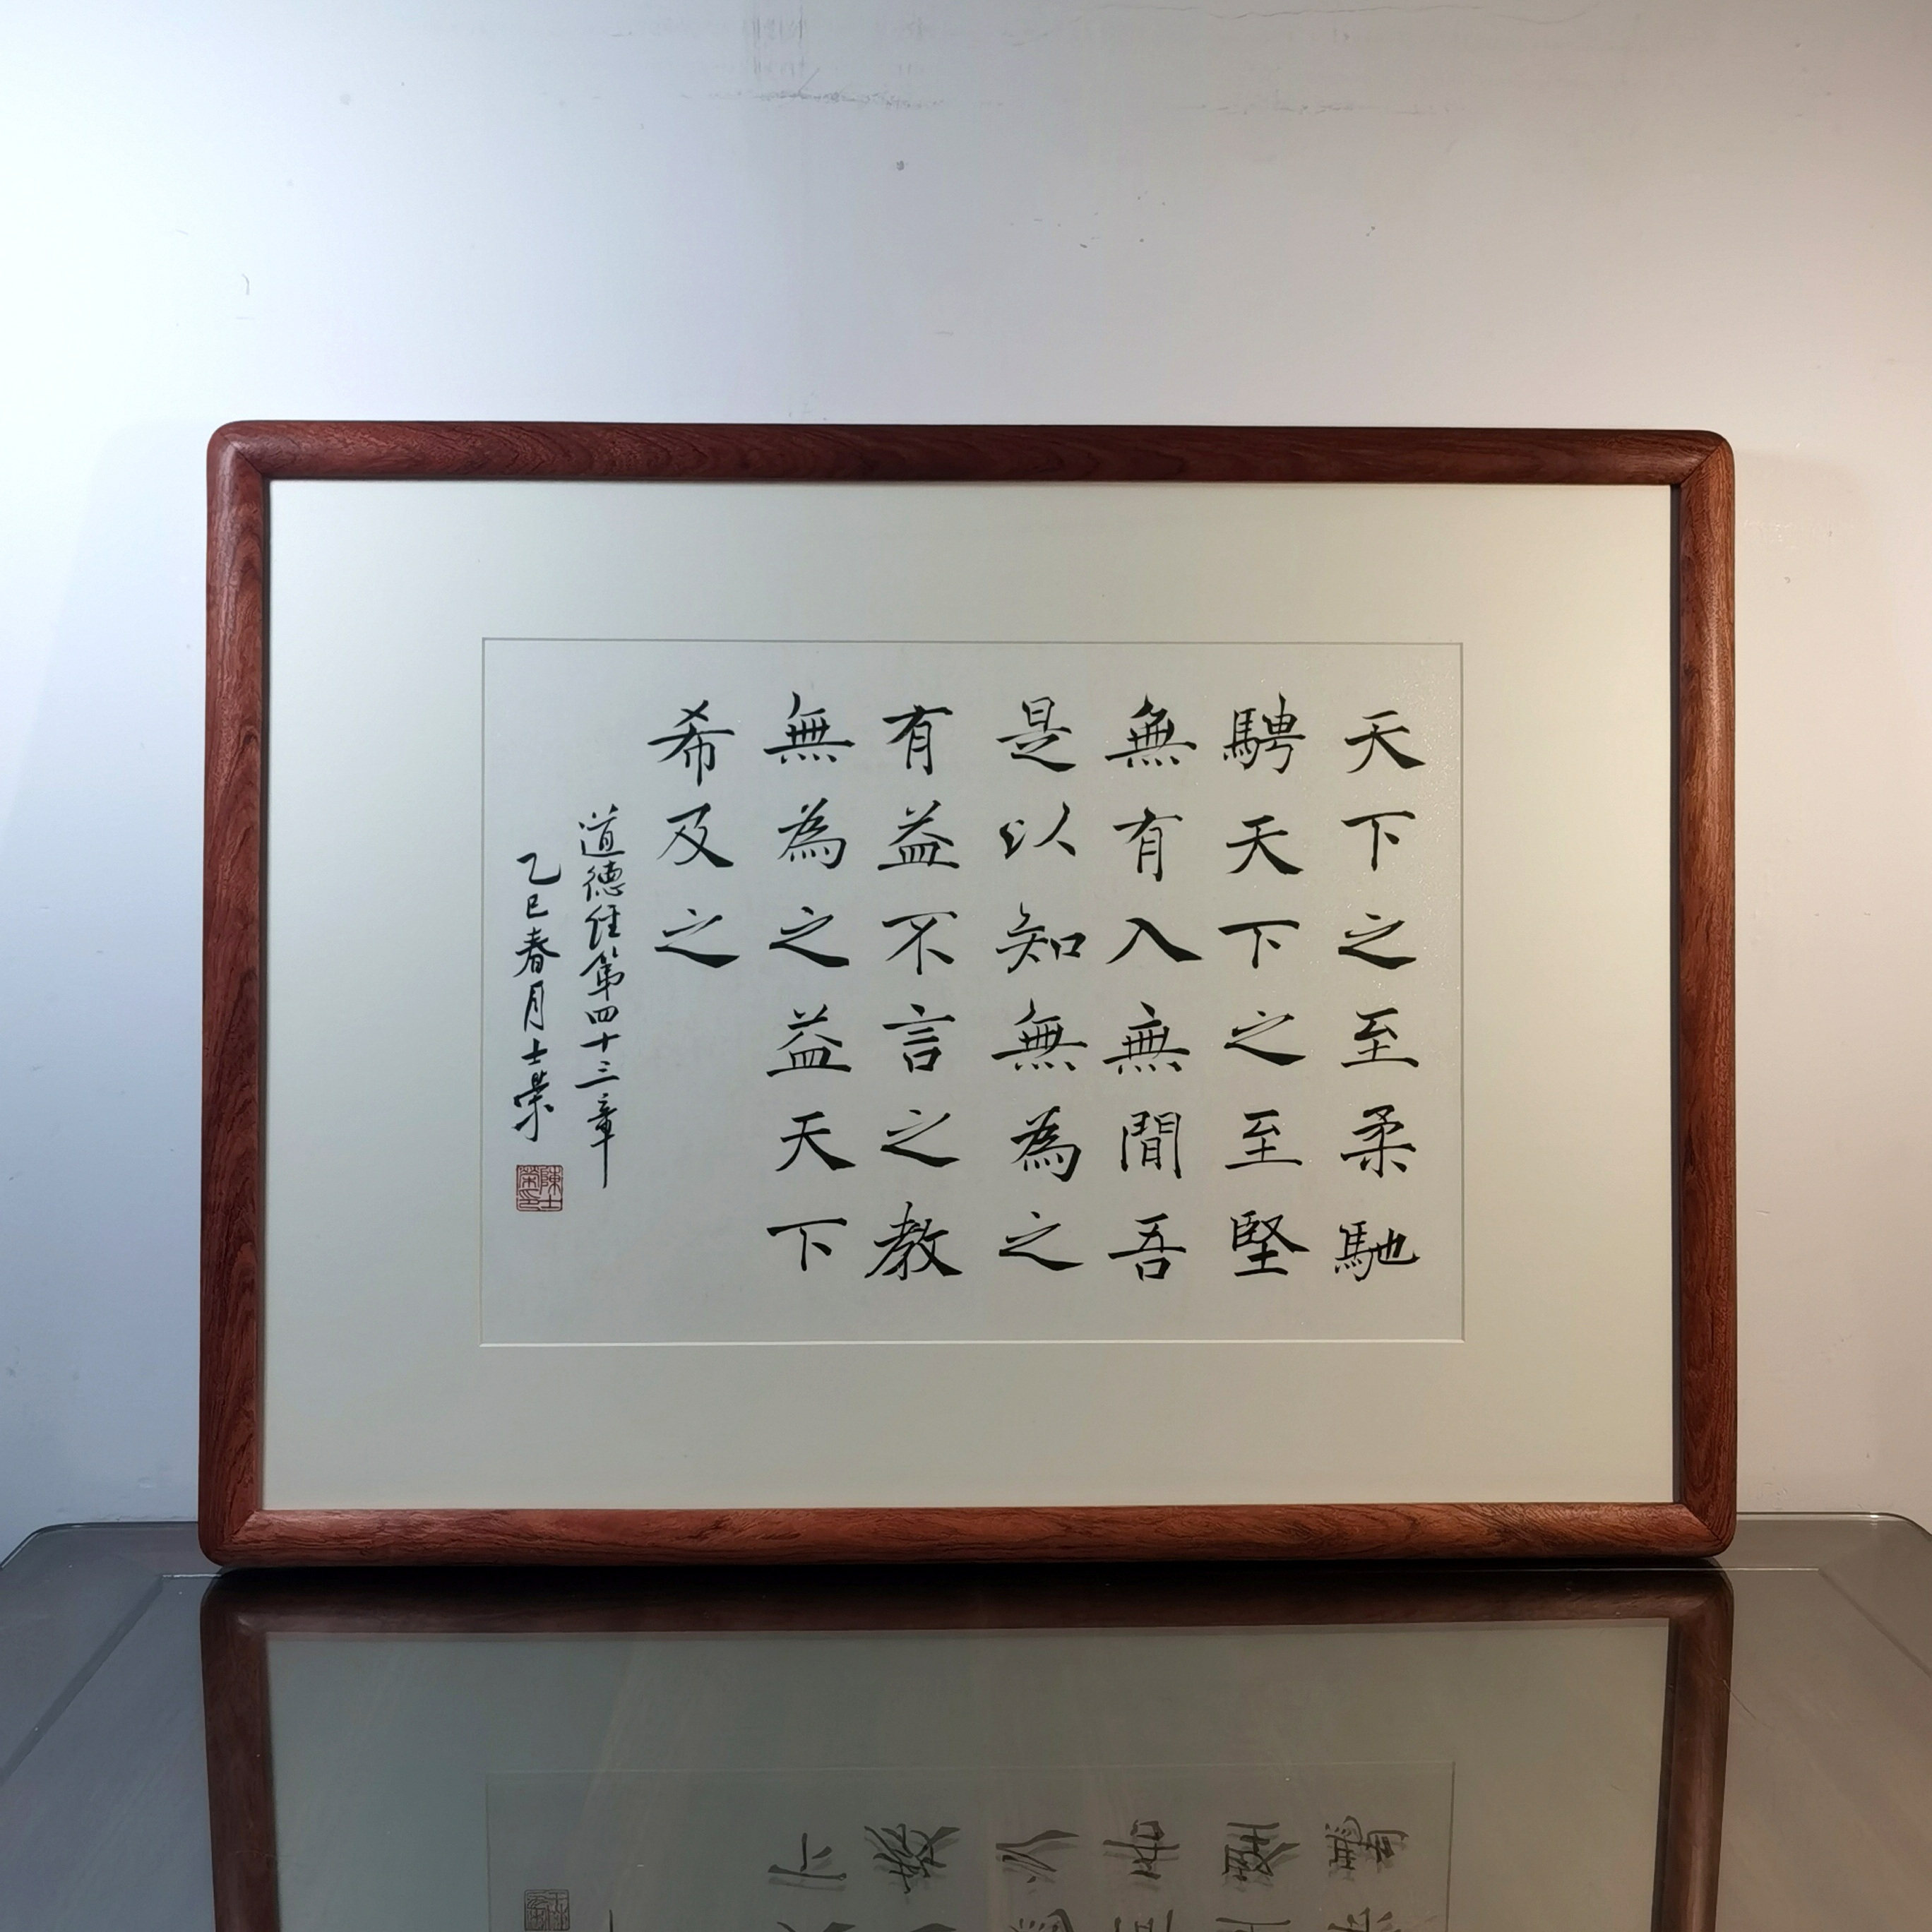 天下之至柔馳
騁天下之至堅
無有入無間吾
是以知無為之
有益不言之教
無為之益天下
希及之
道德经第四十三章
乙巳春月士榮
陳士榮印